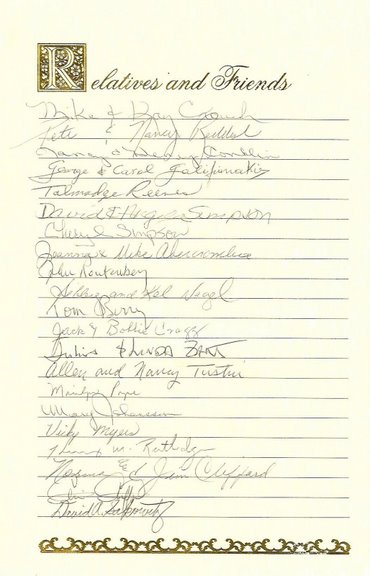 Relatives and Friends
Mike & Kay Crouch
Pete & Nancy
Nancy & Henry Conklin
George & Carol Galifianakis
Talmadge Reeves
David & Simpson
Cheryl Simpson
Joanna & Mike Abercrombie
John Rautenberg
and Hal Nagel
Tom Berry
Jack & Bobbie Cragg
Julius & LINDA BANT
Allen and Nancy Tustin
Marilyn Pope
Mary Johansen
Vicky Myers
M. Rutledge
& Jim Cleppard
David A.